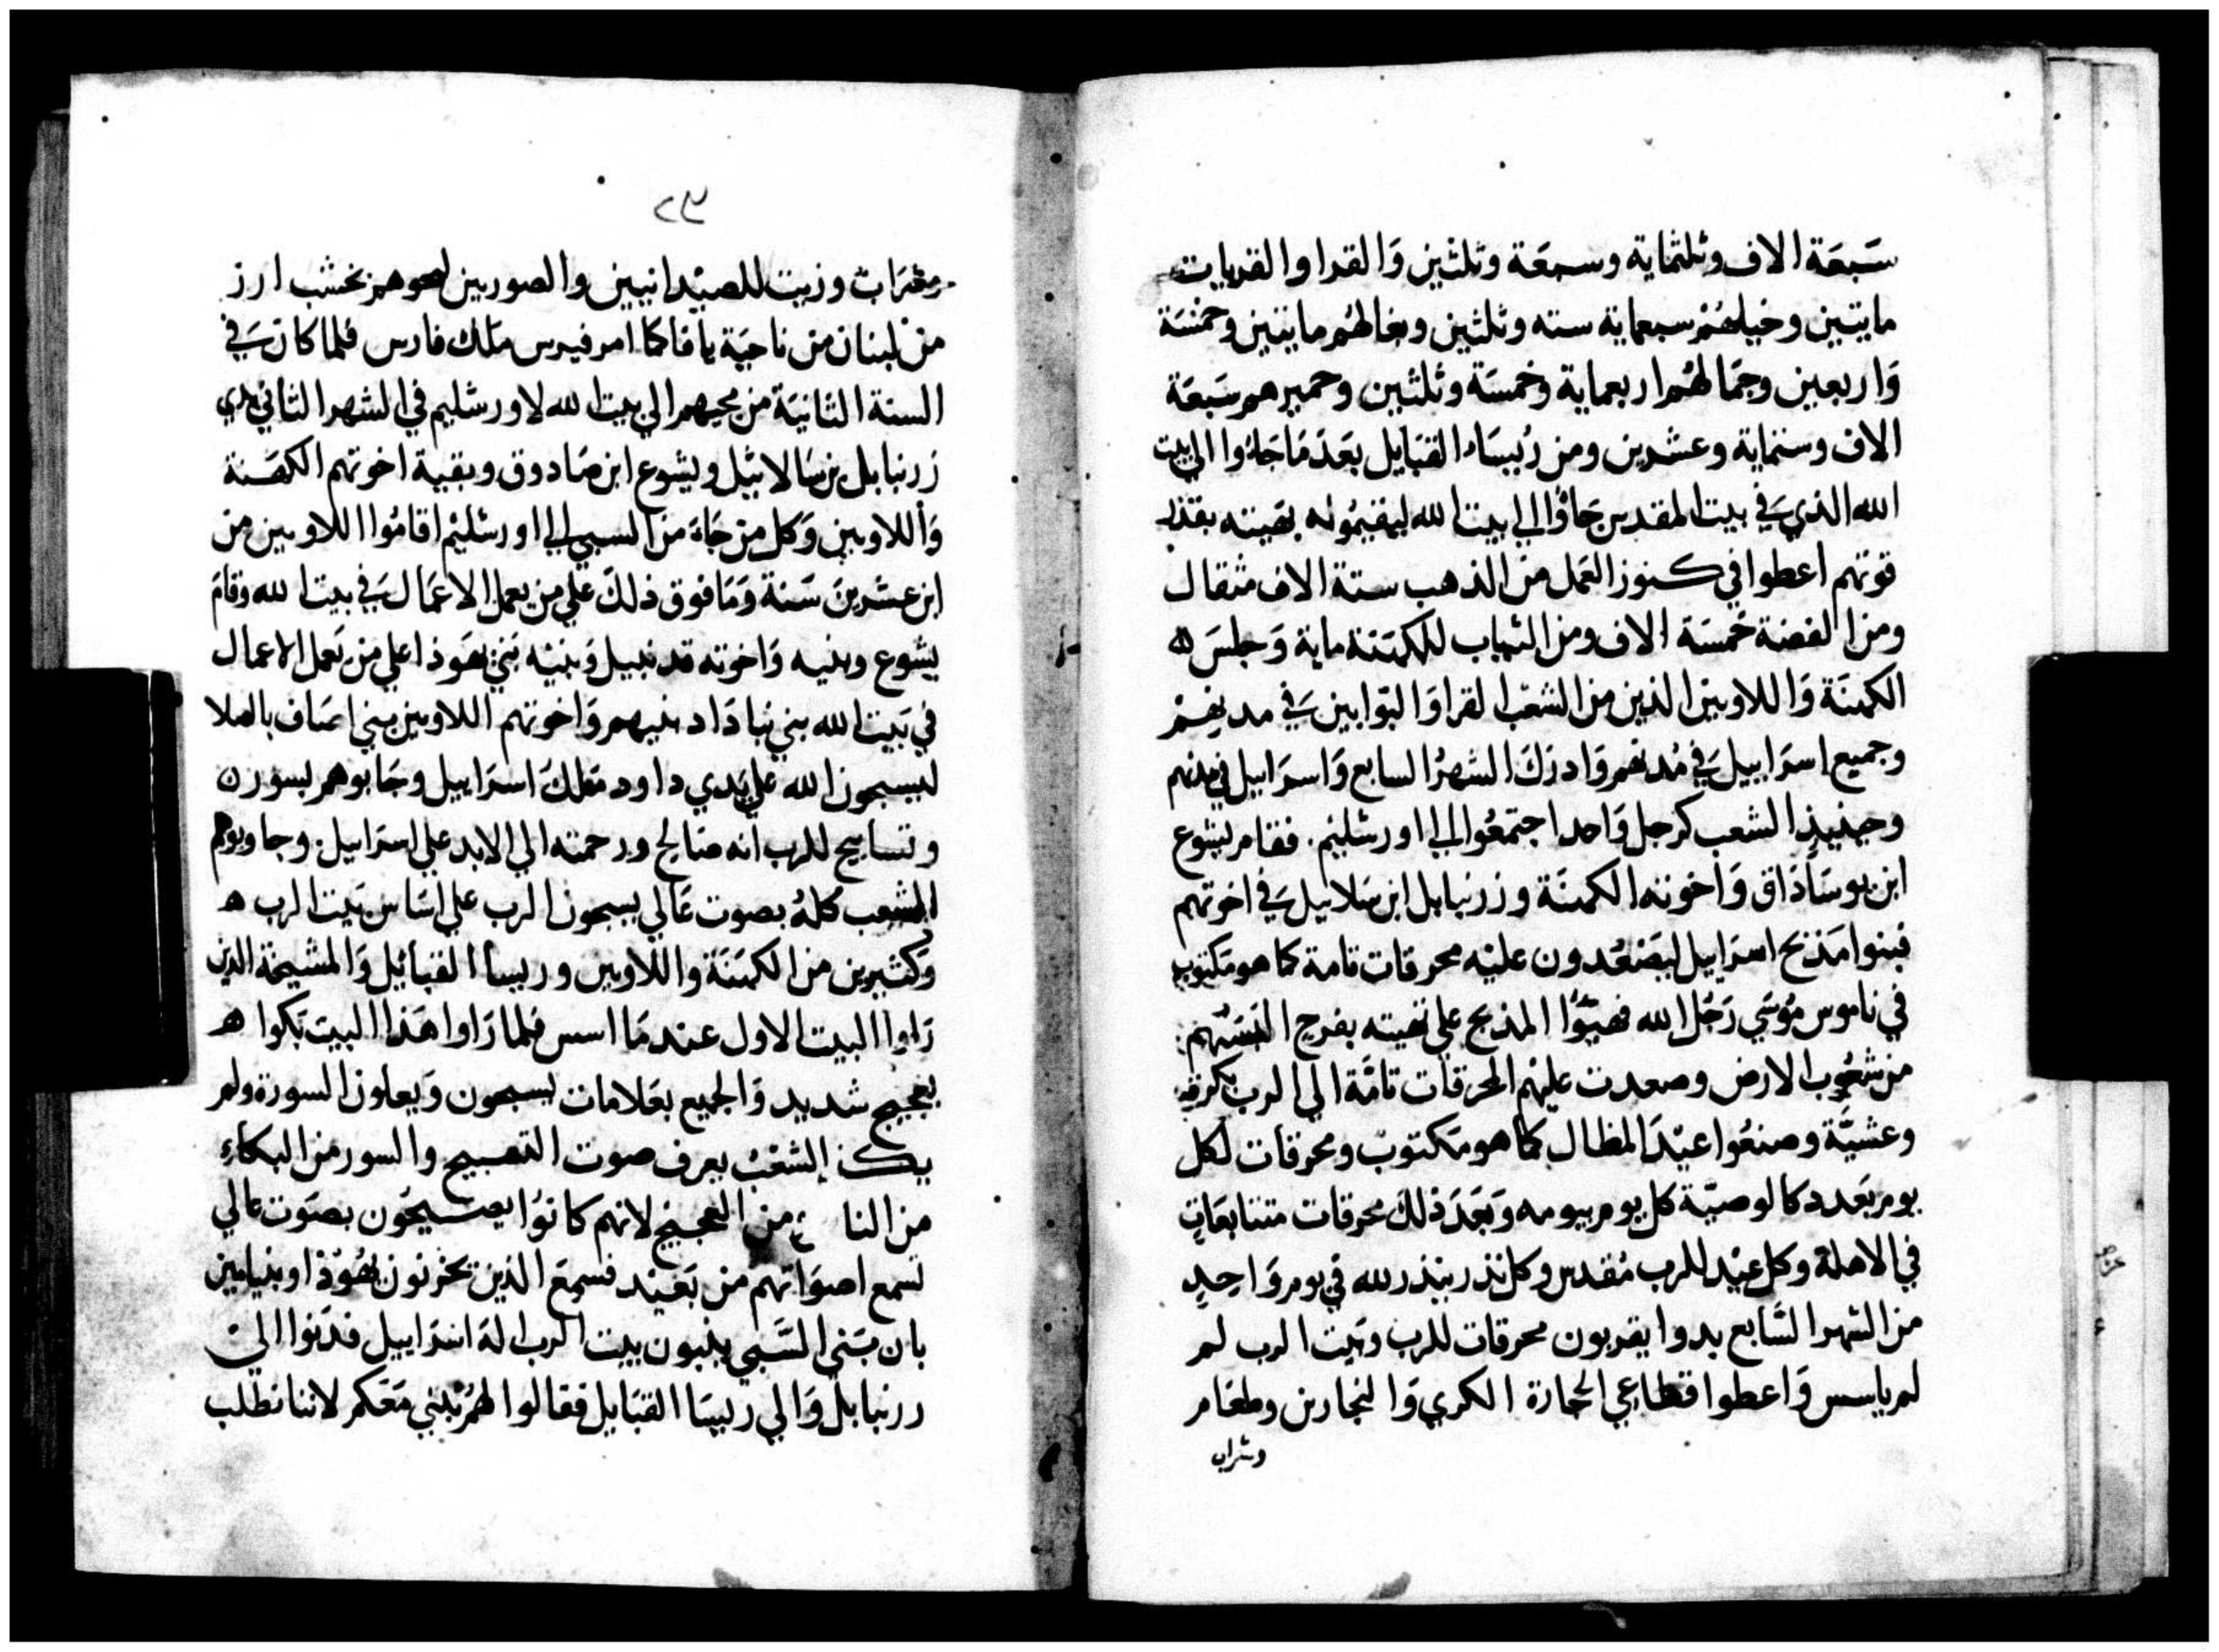 سَبعَة الاف وثلثماية وسبعَة وثلثين وَالقرا والقريات
مايتين وخيلهُمْ سبعماية سته وثلثين وبغالهُم مايتين وخمسَة
وَاربعين وجمَالهُم اربعماية وخمسَة وثلثين وحميرهم سَبعَة
الاف وستماية وعشرين ومن رُيسَاء القبَايل بعَدَ مَا جَاوُا الي بيت
الله الذي في بيت المقدس جَاوُا الي بيت الله ليقيمُوله بقيته بقدر
قوتهم اعطوا في كنوز العَمل من الذهب ستة الاف مثقال
ومن الفضة خمسَة الاف ومن الثياب للكهنَة ماية وَجلسَ
الكهنَة وَاللاويين الذين من الشعْب القرا وَالبوابين في مدنهم
وجميع اسرَاييل في مُدنهم وَادرَكَ الشهرُ السابع وَاسرَاييل في مدنهم
وحينيذٍ الشعب كرجل وَاحد اجتمعُوا الي اورشليم. فقام يشوع
ابن يوسَادَاق وَاخوته الكهنَة وزرنبابل ابن سَلاييل في اخوتهم
فبنوا مَذبح اسرَاييل ليَصْعُدون عليْه محرقات تامة كما هو مَكتوب
في ناموس مُوسَي رَجُل الله فهيّوُا المذبح علي تهيته بفرح انفسَهم
من شعُوب الارض وصعدت عليْهم المحرقات تامَّة الي الرب بكره
وعشيَّة وصنعُوا عيْدَ المظال كما هو مَكتوب ومحرقات لكل
يوم بَعَدد كالوصيّة كل يوم بيومه وَبَعَدَ ذلك محرقات متتابعَات
في الاهلة وكل عيْد للرب مُقدس وكل نذر ينذر لله في يوم وَاحِدٍ
من الشهر السَّابع بدوا يقربون محرقات للرب وبَيت الرب لم
لم ياسس وَاعطوا قطاعي الحجارة الكري وَالنجارين وطعَام
وشراب
ومشرَاب وزيت للصيْدانيين والصوريين بخشب ارز
من لبنان من ناحيَة يافا كما امر فيرس مَلك فارس فلما كانَ في
السنة الثانيَة من مجيهم الي بيت الله لاورشليم في الشهر الثاني بدي
زرنبابل بن سَالاثيل ويشوع ابن صَادوق وبقية اخوتهم الكهَنة
وَاللاويين وَكل من جَاءَ من السبي الي اورشليم اقامُوا اللاويين من
ابن عشرينَ سَنة وَمَا فوق ذلكَ علي من يعمل الاعمَال في بيت الله وقامَ
يشوع وبنيه وَاخوته قدمييل وَبنيْه بَني يهَوذا علي من يَعمل الاعمال
في بَيت الله بني نبادَاد بنيهم وَاخوتهم اللاويين بني اصَاف
ليسبحون الله علي يَدي داود مَلكَ اسرَاييل وجَابوهم
وتسابيح للرب انه صَالح ورحمته الي الابد علي اسرَاييل. وجاوبوهم
الشعب كلهُ بصوت عَالي يسبحون الرب علي اسَاس بَيت الرب
وكثيرين من الكهَنَة واللاويين وريسا القبائل وَالمشيخة الذين
رَاوا البيت الاول عندمَا اسس فلما رَاوا هَذا البيت بَكوا
بعجيج شديد وَالجميع بعَلامات يسبحون وَيعلون السورة ولم
يكن الشعْب يعرف صوت التسبيح والسور من البكاء
من النا من العجيج لانهم كانوُا يصيحُون بصَوت عالي
تسمع اصوَاتهم من بَعيْد فسمِعَ الذين يحزنون يهُوْذا وبنيامين
بان بَني السَّبي يبنون بيت الرب الهَ اسرَاييل فدَنوا الي
زرنبابل وَالي رييسَا القبَايل فقالوا لهُم نبْني مَعَكم لاننا نطلب